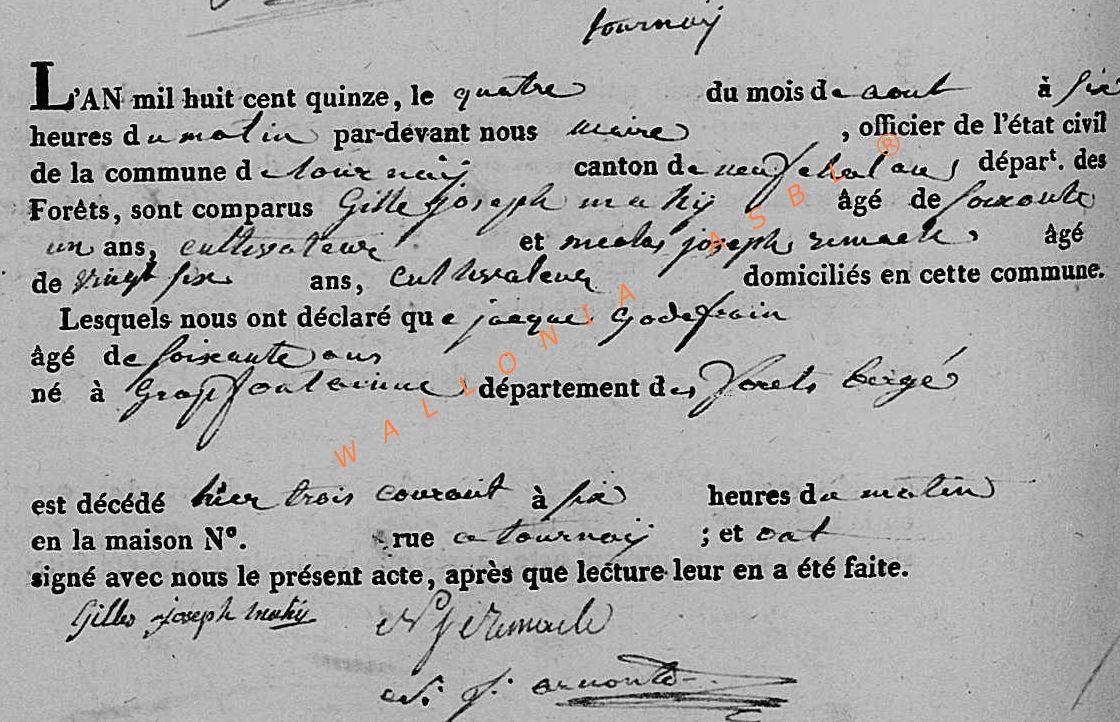 tournay
L'AN mil huit cent quinze, le quatre du mois de aout à six
heures du matin par-devant nous maire, officier de l'état civil
de la commune de tournay canton de neufchateau, départ. des
Forêts, sont comparus Gille joseph mahy âgé de soixante
un ans, cultivateur et nicolas joseph remacle âgé
de vingt six ans, cultivateur domiciliés en cette commune.
Lesquels nous ont déclaré que jacque Godefroin
âgé de soixante ans
né à Grapfontaine département des forets bergé
est décédé hier trois courant à six heures du matin
en la maison Nº. rue a tournay ; et ont
signé avec nous le présent acte, après que lecture leur en a été faite.
Gilles joseph mahy N j Remacle
j. arnould
WALLONIA ASBL ®